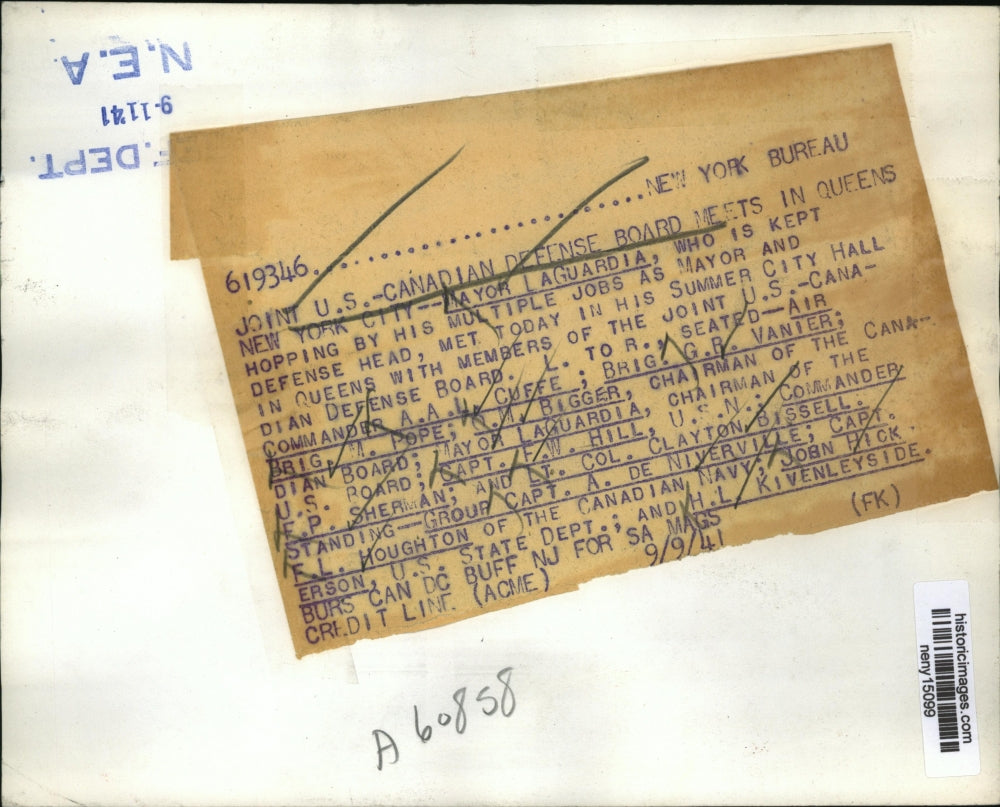 N.E.A.
9-11'41
F. DEPT.
619346..............................NEW YORK BUREAU
JOINT U.S.-CANADIAN DEFENSE BOARD MEETS IN QUEENS
NEW YORK CITY--MAYOR LAGUARDIA, WHO IS KEPT
HOPPING BY HIS MULTIPLE JOBS AS MAYOR AND
DEFENSE HEAD, MET TODAY IN HIS SUMMER CITY HALL
IN QUEENS WITH MEMBERS OF THE JOINT U.S.-CANA-
DIAN DEFENSE BOARD. L. TO R., SEATED--AIR
COMMANDER A.A.L. CUFFE, BRIG. G.P. VANIER;
BRIG. M. POPE; M. BIGGER, CHAIRMAN OF THE CANA-
DIAN BOARD; MAYOR LAGUARDIA, CHAIRMAN OF THE
U.S. BOARD; CAPT. F.W. HILL, U.S.N.; COMMANDER
F.P. SHERMAN; AND LT. COL. CLAYTON BISSELL.
STANDING--GROUP CAPT. A. DE NIVERVILLE; CAPT.
F.L. HOUGHTON OF THE CANADIAN NAVY; JOHN HICK
ERSON, U.S. STATE DEPT., AND H.L. KIVENLEYSIDE.
BURS CAN DC BUFF NJ FOR SA MAGS (FK)
CREDIT LINE (ACME) 9/9/41
A 60858
historicimages.com
neny15099